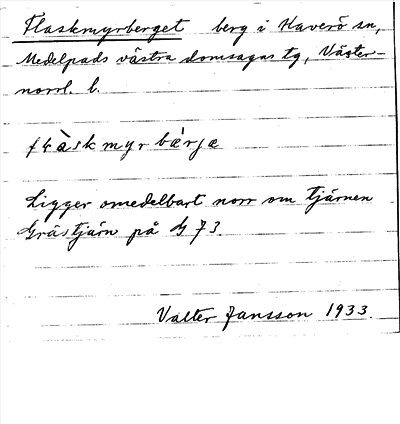 Flaskmyrberget berg i Haverö sn,
Medelpads västra domsagas tg, Väster-
norrl. l.
Ligger omedelbart norr om tjärnen
Grästjärn på G 73
Valter Jansson 1933.